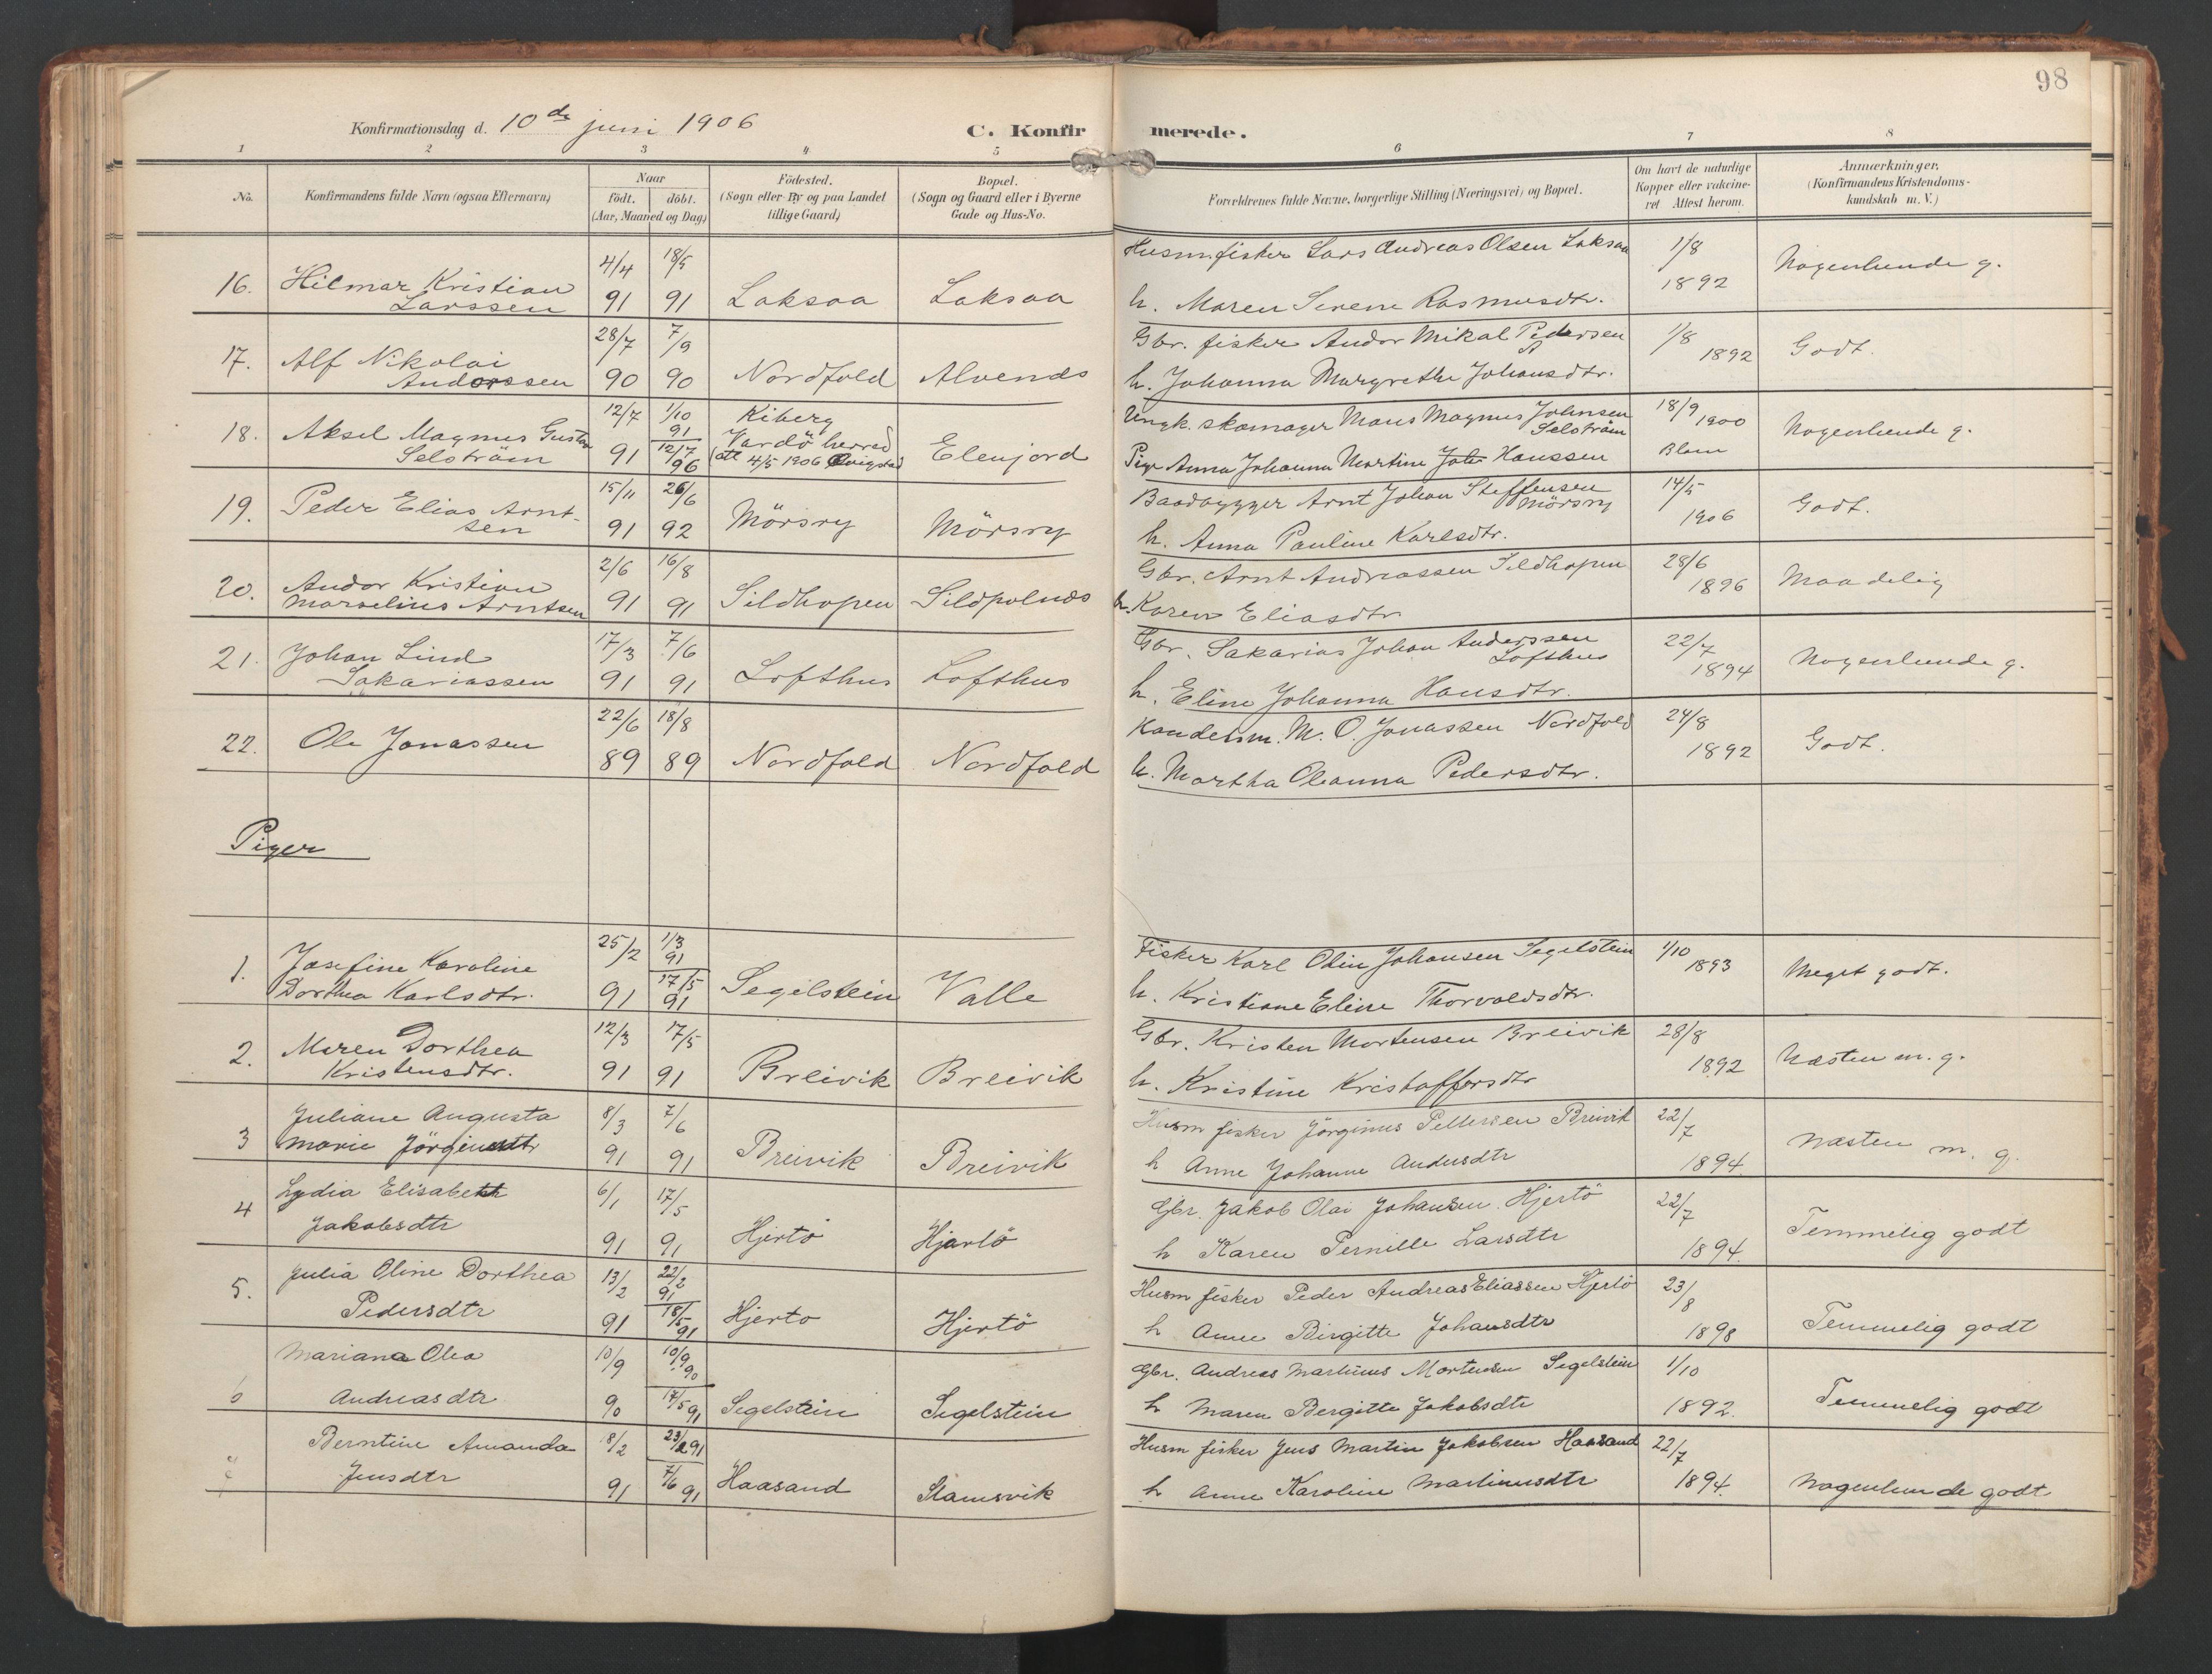 98
Konfirmationsdag d. 10de juni 1906
C. Konfirmerede.
1 2 3 4 5 6 7 8
No.
Konfirmandens fulde Navn (ogsaa Efternavn)
Naar
födt. döbt.
(Aar, Maaned og Dag)
Födested.
(Sogn eller By og paa Landet
tillige Gaard)
Bopæl.
(Sogn og Gaard eller i Byerne
Gade og Hus-No.
Forældrenes fulde Navne, borgerlige Stilling (Næringsvei) og Bopæl.
Om havt de naturlige
Kopper eller vakcine-
ret. Attest herom.
Anmærkninger.
(Konfirmandens Kristendoms-
kundskab m. V.)
16. Hilmar Kristian
Larssen
4/4 91
18/5 91
Laksaa
Laksaa
Husm. fisker Lars Andreas Olsen Laksaa
h. Maren Serene Rasmusdtr.
1/8
1892
Nogenlunde g.
17. Alf Nikolai
Andorssen
28/7 90
7/9 90
Nordfold
Alvenes
Gbr. fisker Andor Mikal Pedersen
h. Johanna Margrethe Johansdtr.
1/8
1892
Godt.
18. Aksel Magnus Gustav
Selström
12/7 91
1/10 91
12/7 96
Kiberg
Vardö herred
(att 4/5 1906
Elenjord
Ungk. skomager Mons Magnus Johnsen
Selström
Pige Anna Johanna Martine Hanssen
18/9 1900
Nogenlunde g.
19. Peder Elias Arnt-
sen
15/11 91
26/6 92
Mörsry
Mörsry
Baadbygger Arnt Johan Steffensen
Mörsry
h. Anna Pauline Karlsdtr.
14/5
1906
Godt.
20. Andor Kristian
Marselius Arntsen
2/6 91
16/8 91
Sildhopen
Sildpolnes
Gbr. Arnt Andreassen Sildhopen
h. Karen Eliasdtr
28/6
1896
Maadelig
21. Johan Lind
Sakariassen
17/3 91
7/6 91
Lofthus
Lofthus
Gbr. Sakarias Johan Anderssen
Lofthus
h. Eline Johanna Hansdtr.
22/7
1894
Nogenlunde g.
22. Ole Jonassen
22/6 89
18/8 89
Nordfold
Nordfold
Handelsm. M. O. Jonassen Nordfold
h. Martha Oleanna Pedersdtr.
24/8
1892
Godt.
Piger
1. Josefine Karoline
Dorthea Karlsdtr.
25/2 91
1/3 91
17/5 91
Segelstein
Valle
Fisker Karl Odin Johansen Segelstein
h. Kristiane Eline Thorvaldsdtr.
1/10
1893
Meget godt.
2. Maren Dorthea
Kristensdtr.
12/3 91
17/5 91
Breivik
Breivik
Gbr. Kristen Mortensen Breivik
h. Kristine Kristoffersdtr
28/8
1892
Næsten m. g.
3 Juliane Augusta
Marie Jörginusdtr
8/3 91
7/6 91
Breivik
Breivik
Husm fisker Jörginus Pettersen Breivik
h Anne Johanne Andersdtr
22/7
1894.
Næsten m. g.
4 Lydia Elisabeth
Jakobsdtr
6/1 91
17/5 91
Hjertö
Hjartö
Gbr. Jakob Olai Johansen Hjertö
h Karen Pernille Larsdtr
22/7
1894.
Temmelig godt
5. Julia Oline Dorthea
Pedersdtr
13/2 91
22/2 91
18/5 91
Hjerto
Hjertö
Husm fisker Peder Andreas Eliassen Hjertö
h Anne Birgitte Johansdtr
23/8
1898
Temmelig godt
6 Mariana Olea
Andreasdtr
10/9 90
10/9 90
17/5 91
Segelstein
Segelstein
Gbr. Andreas Martinus Mortensen Segelstein
h Maren Bergitte Jakobsdtr
1/10
1892.
Temmelig godt
7 Berntine Amanda
Jensdtr
8/2 91
23/2 91
7/6 91
Haasand
Stamsvik
Husm fisker Jens Martin Jakobsen Haasand
h Anne Karoline Martinusdtr
22/7
1894.
Nogenlunde godt